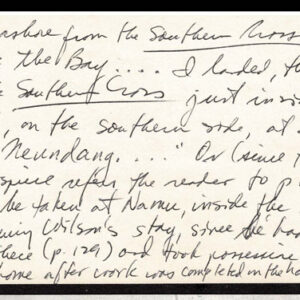 ashore from the Southern Cross
the Bay.... I landed, th
Southern Cross just insi
, on the southern side, at
Neundang....." Or (since
refers the reader to p.
be taken at Namu, inside the
Wilson's stay, since he had
there (p. 129) and took possession
home after work was completed in the ha